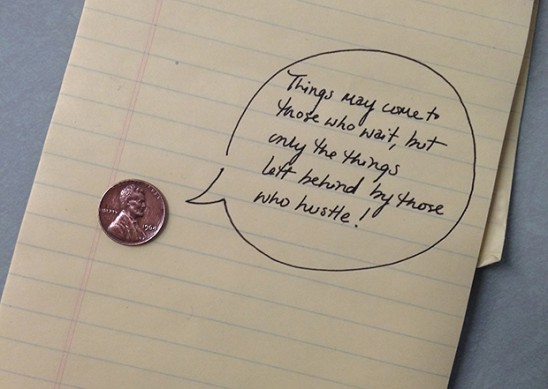 Things may come to
those who wait, but
only the things
left behind by those
who hustle!